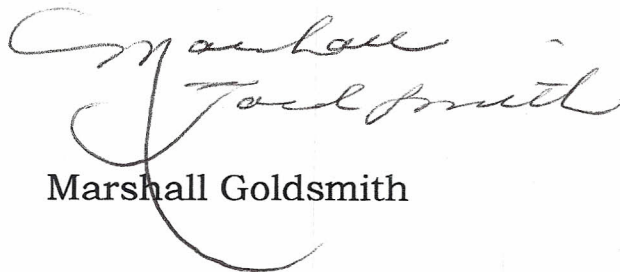 Marshall
Goldsmith
Marshall Goldsmith